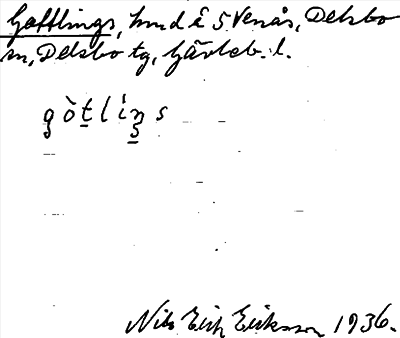 Gottlings, hmd å 5 Venås, Delsbo
sn, Delsbo tg, Gävleb. l.
gòtlıṉs
Nils Erik Eriksson 1936.